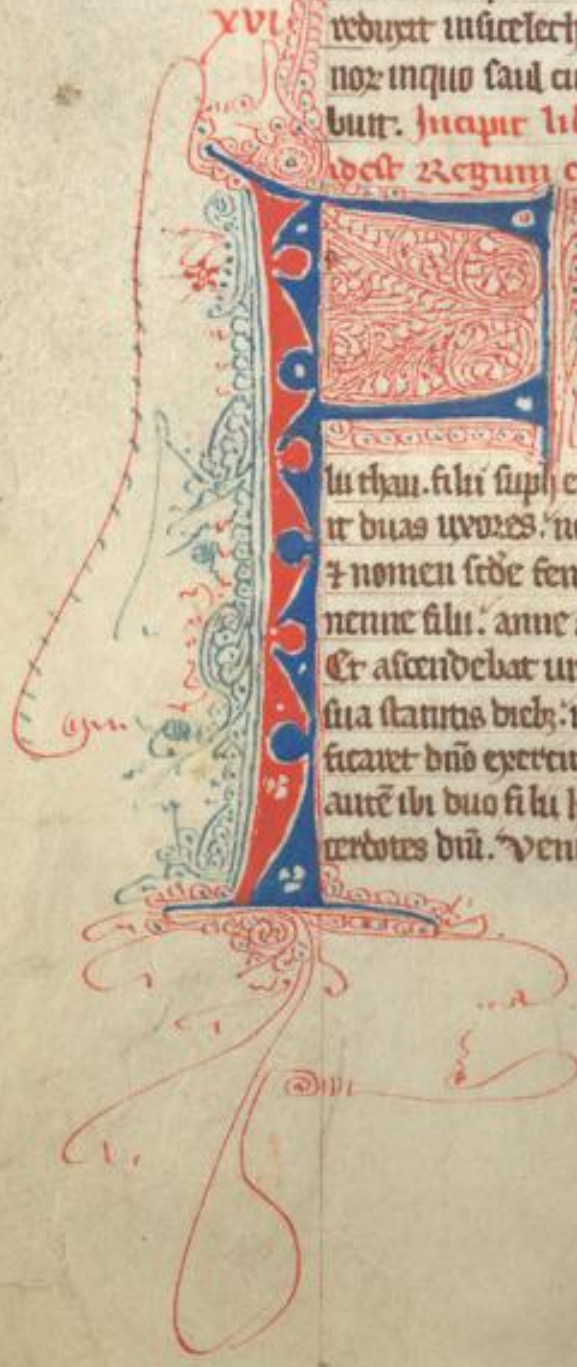 XVI
reduxit insicelech
nor in quo saul
buit. Incipit li
idest Regum
F
lii thau. filii suph e
it duas uxores. no
⁊ nomen scde fen
nenne filii. anne
Et ascendebat uir
sua statutis dieb;
ficaret dno exercitu
autē ibi duo filii h
cerdotes dni. Veni